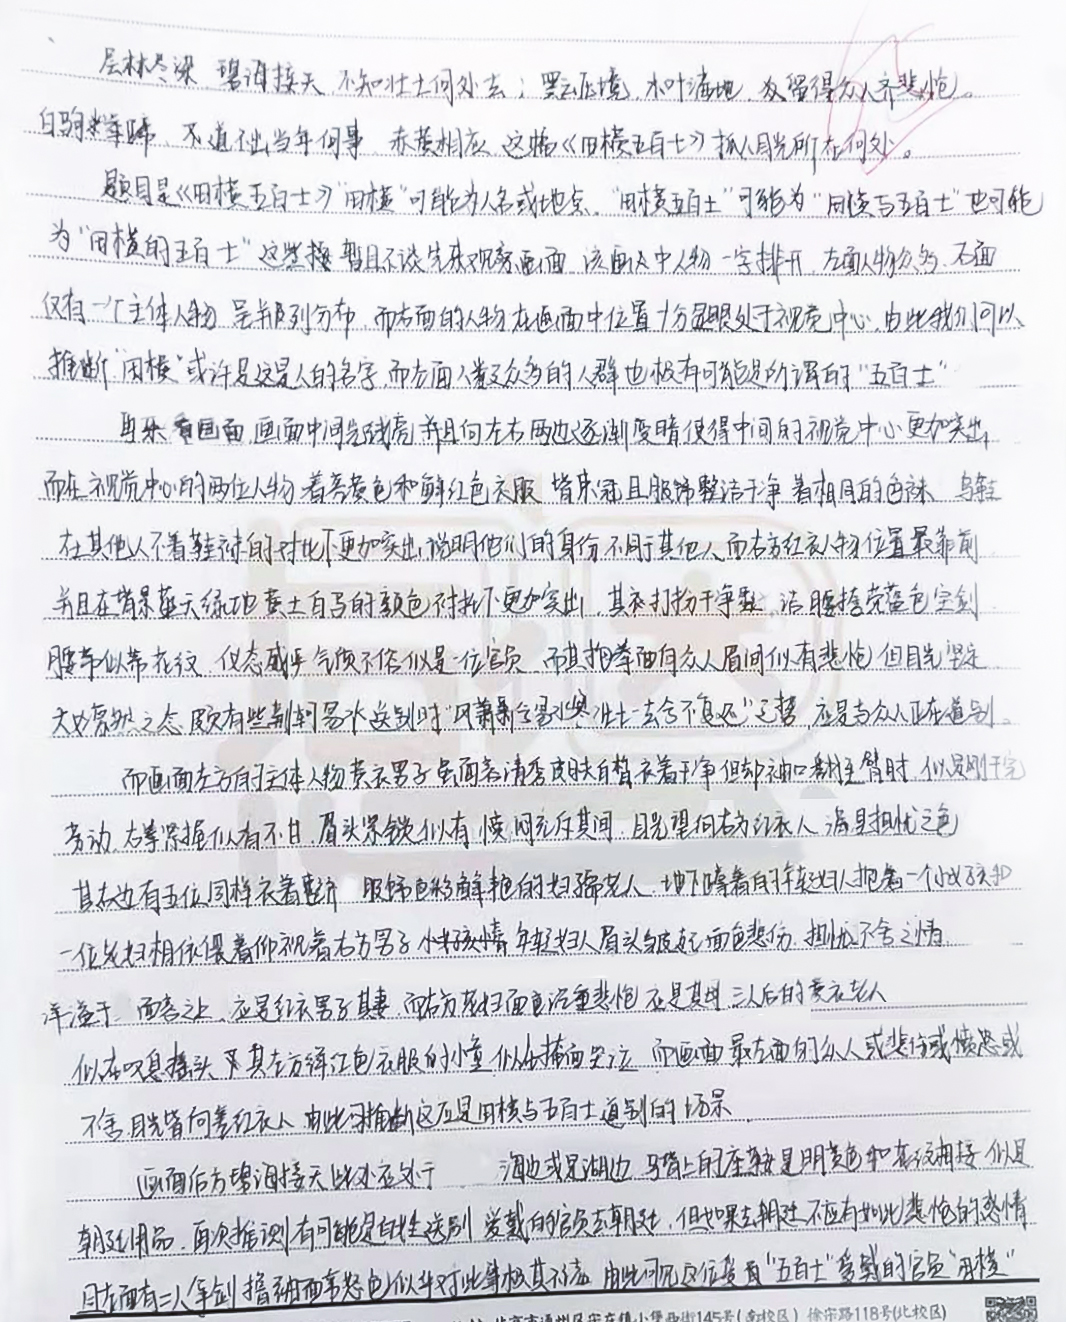 层林尽染,碧海接天,不知壮士何处去;黑云压境,木叶满地,仅留得众人齐悲怆。
白驹 ,不道不出当年何事,赤黄相应,这幅《田横五百士》抓人目光所在何处。
题目是《田横五百士》"田横"可能为人名或地点,"田横五百士"可能为"田横与五百士"也可能
为"田横的五百士"这些 暂且不谈先来观察画面,该画面中人物一字排开,左面人物众多,右面
仅有一个主体人物,呈并列分布,而右面的人物在画面中位置十分显眼处于视觉中心,由此我们可以
推断"田横"或许是这是人的名字,而左面人数众多的人群也极有可能是所谓的"五百士"
再来看画面,画面中间光线亮并且向左右两边逐渐变暗使得中间的视觉中心更加突出,
而在视觉中心的两位人物着亮黄色和鲜红色衣服,皆束冠且服饰整洁干净,着相同的色袜,乌鞋
在其他人不着鞋袜的对比下更加突出,说明他们的身份不同于其他人,而右方红衣人物位置最靠前
并且在背景蓝天绿地黄土白马的颜色衬托下更加突出,其衣打扮干净整洁,腰挎壳蓝色宝剑
腰带似带花纹,仪态威严气质不俗似是一位官员,而其抱拳面向众人眉间似有悲怆但目光坚定
大义凛然之态,颇有些荆轲易水送别时"风萧萧兮易水寒,壮士一去兮不复返"之势,应是与众人正在道别。
而画面左方的主体人物黄衣男子虽面容清秀皮肤白皙衣着干净但却袖口 至臂肘,似是刚干完
劳动,右拳紧握似有不甘,眉头紧锁似有愤恨充斥其间,目光望向右方红衣人,满是担忧之色
其右边有五位同样衣着 ,服饰色彩鲜艳的妇孺老人,地下蹲着的年轻妇人抱着一个小女孩和
一位老妇相依偎着仰视着右方男子,小女孩 年轻妇人眉头皱起面色悲伤,担忧不舍之情
洋溢于 面容之上,应是红衣男子其妻,而右方老妇面色沉重悲怆应是其母,三人后的黄衣老人
似在叹息摇头及其左方绛红色衣服的小童似在掩面哭泣,而画面最左面的众人或悲伤或愤怒或
不舍目光皆向着红衣人,由此可推断这应是田横与五百士道别的场景
画面后方碧海接天此处应处于 海边或是湖边,马背上的座鞍是明黄色和花纹相接,似是
朝廷用品,再次推测有可能是百姓送别爱戴的官员去朝廷,但如果去朝廷不应有如此悲怆的感情
且左面有二人拿剑 面带怒色似乎对此事极其不满,由此可见这位受着"五百士"爱戴的官员"田横"
小堡西街145号(南校区) 徐宋路118号(北校区)